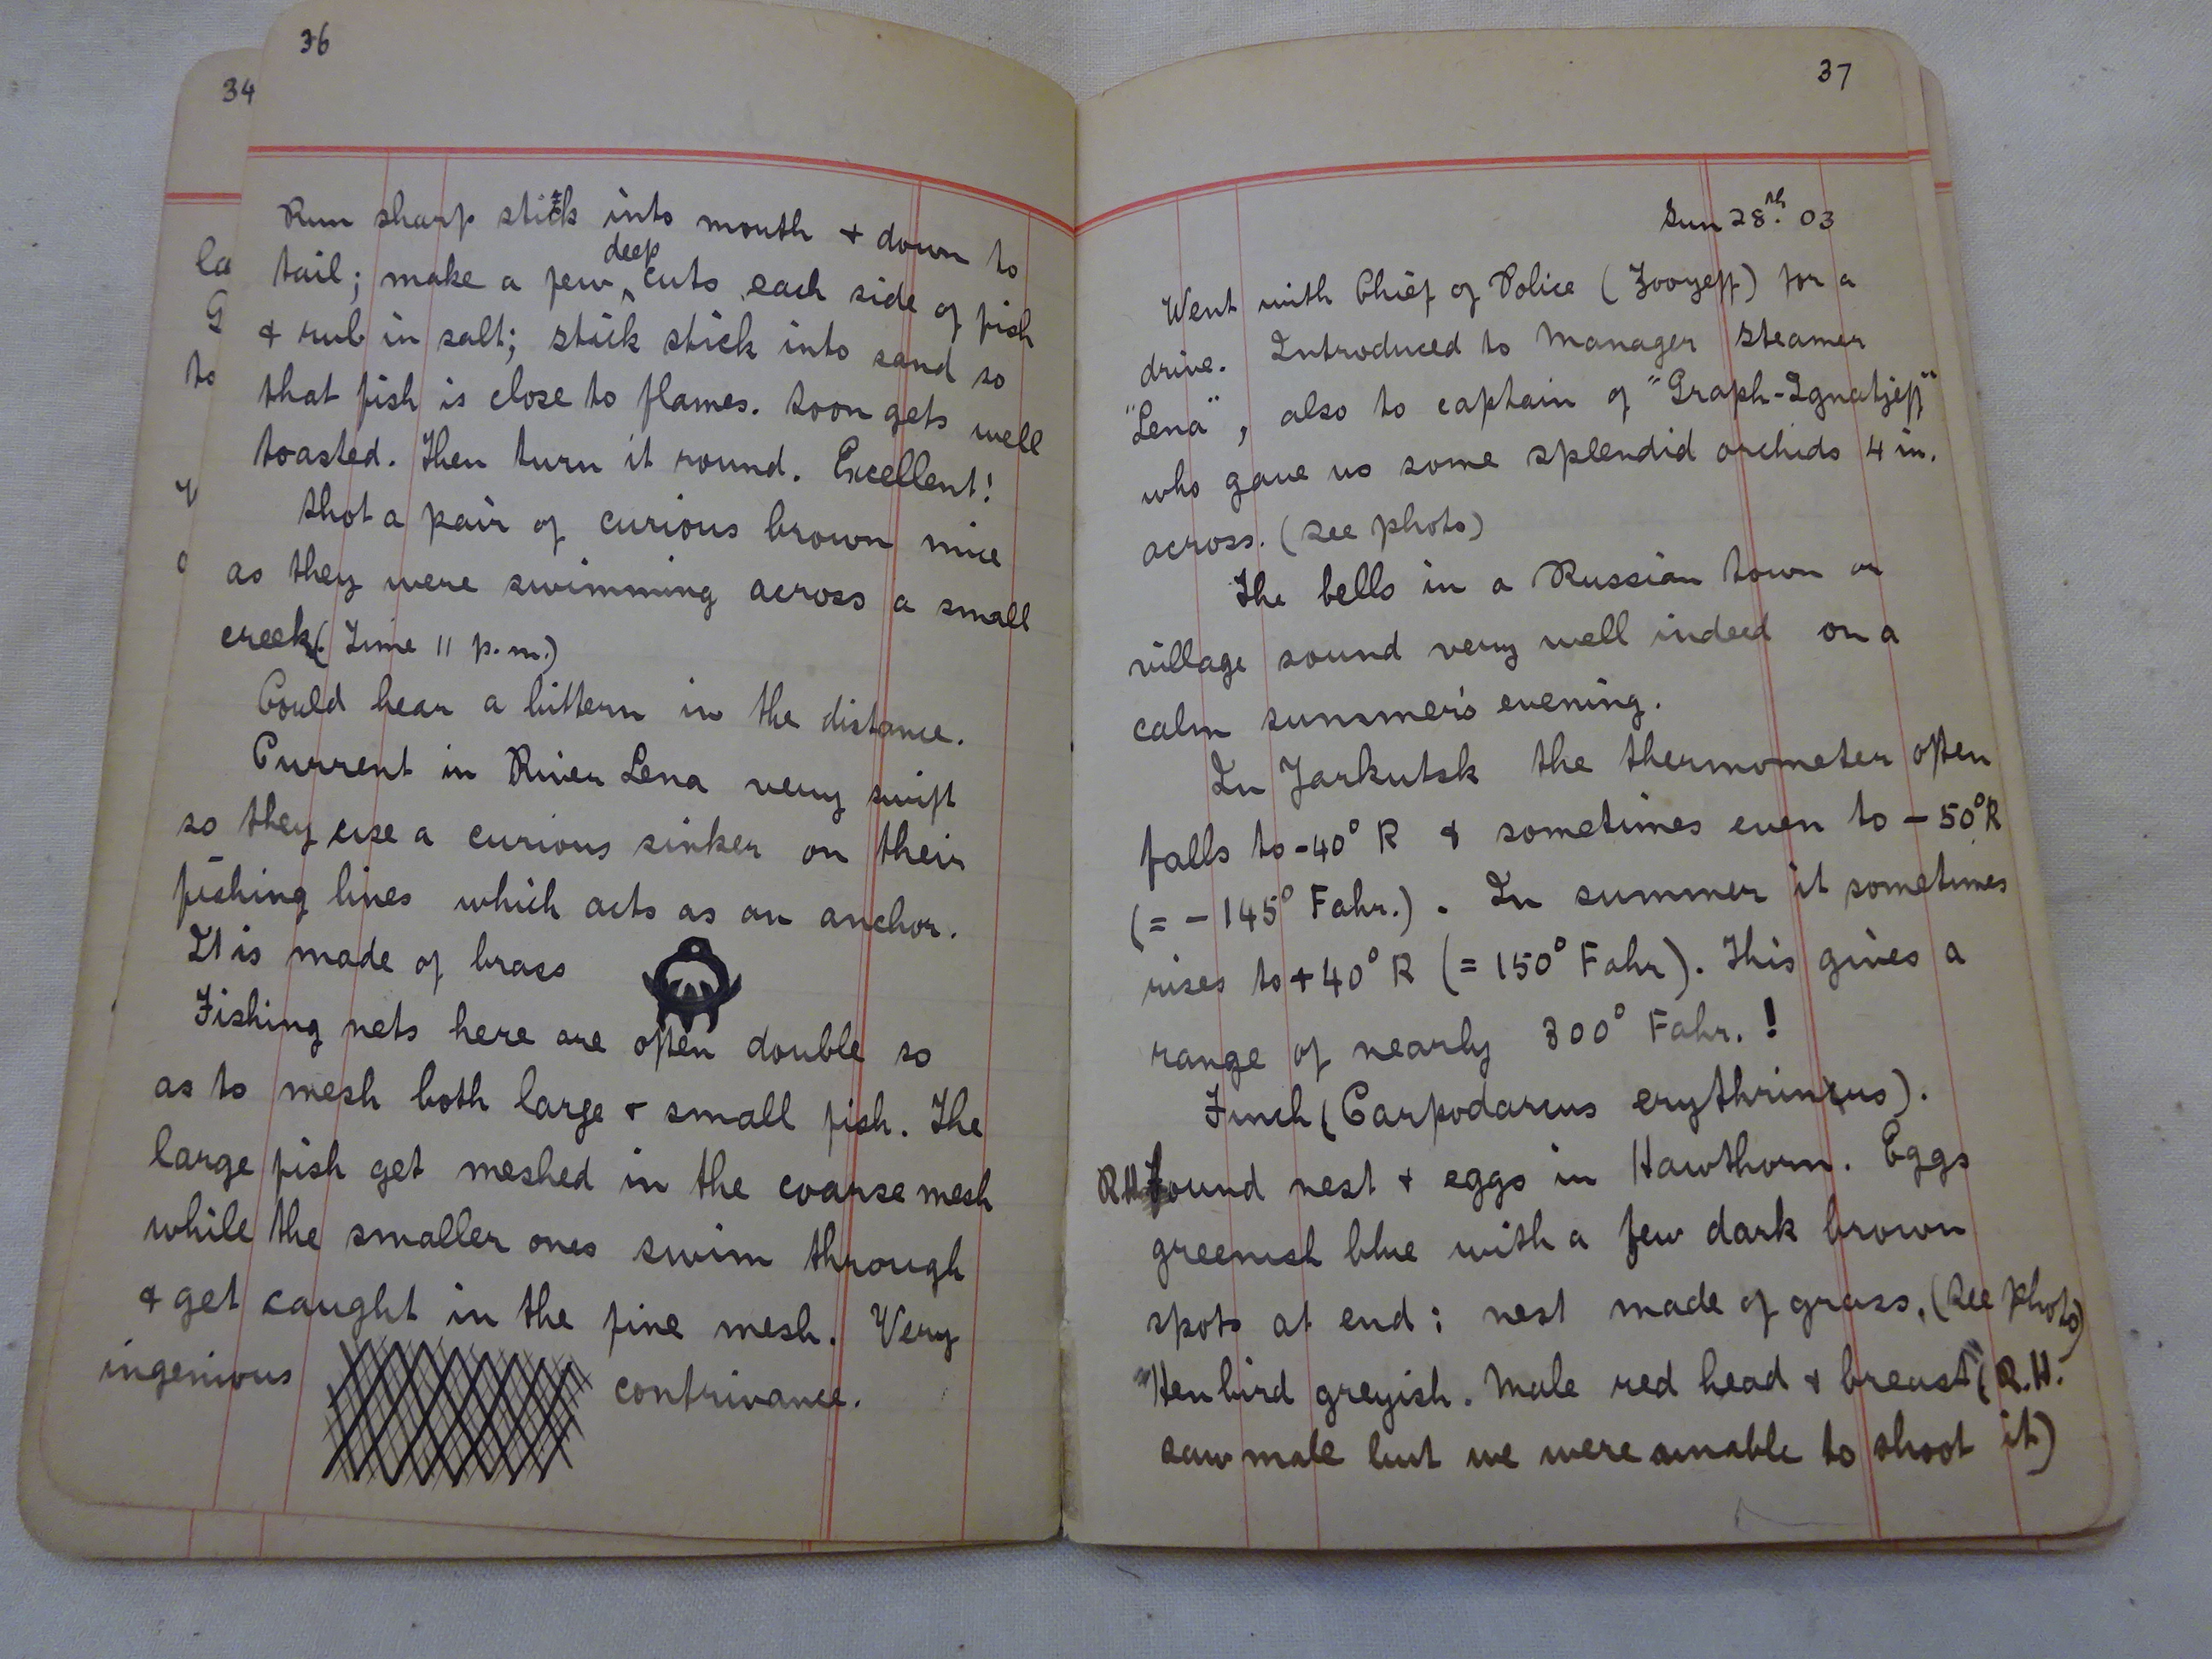 34
la
G
to
36
Run sharp stick into mouth + down to
tail; make a few deep cuts each side of fish
+ rub in salt; stick stick into sand so
that fish is close to flames. Soon gets well
toasted. Then turn it round. Excellent!
Shot a pair of curious brown mice
as they were swimming across a small
creek. (Time 11 p.m.)
Could hear a bittern in the distance.
Current in River Lena very swift
so they use a curious sinker on their
fishing lines which acts as an anchor.
It is made of brass
Fishing nets here are often double so
as to mesh both large + small fish. The
large fish get meshed in the coarse mesh
while the smaller ones swim through
+ get caught in the fine mesh. Very
ingenious contrivance.
37
Jun 28th. 03
Went with Chief of Police (Zooyeff) for a
drive. Introduced to Manager Steamer
"Lena", also to captain of "Graph-Ignatjeff"
who gave us some splendid orchids 4 in.
across. (See photo)
The bells in a Russian town or
village sound very well indeed on a
calm summer's evening.
In Jarkutsk the thermometer often
falls to -40° R & sometimes even to -50°R
(= -145° Fahr.). In summer it sometimes
rises to +40° R (= 150° Fahr). This gives a
range of nearly 300° Fahr. !
Finch (Carpodarcus erythrinus).
R.H. Found nest + eggs in Hawthorn. Eggs
greenish blue with a few dark brown
spots at end; nest made of grass. (See Photo)
"Hen bird greyish. Male red head + breast" (R.H.
saw male but we were unable to shoot it)